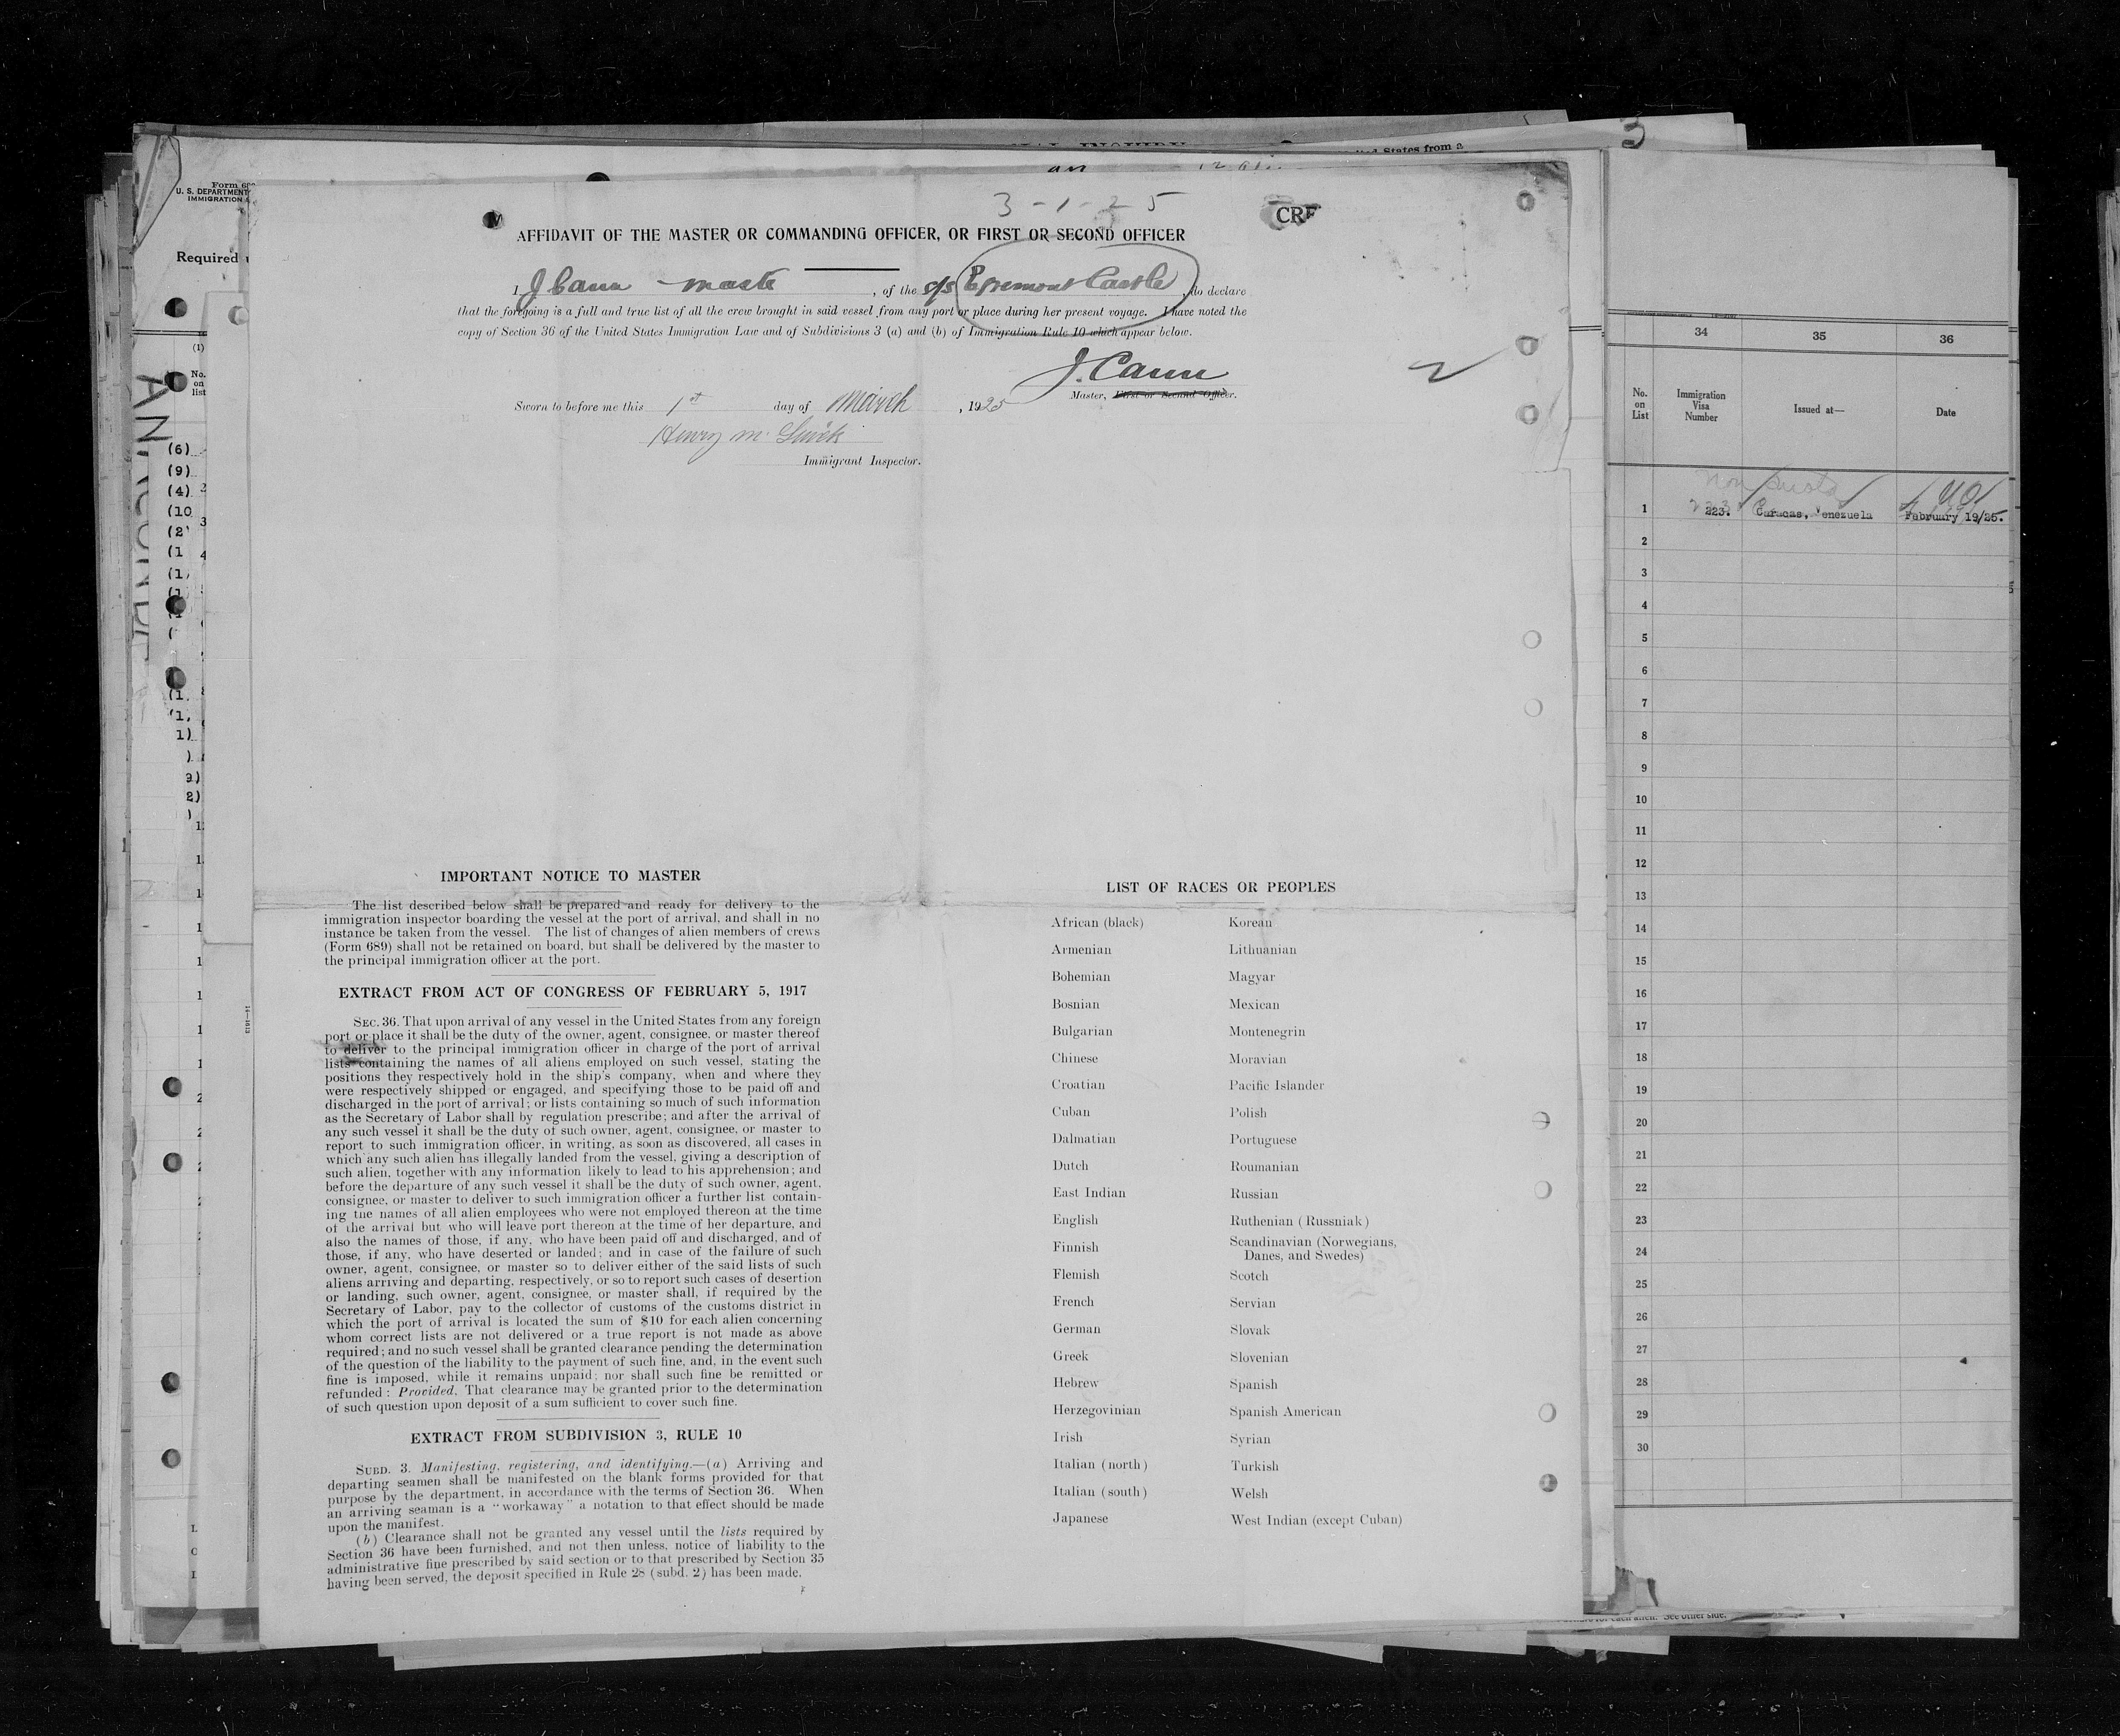 3-1-25
CRE
AFFIDAVIT OF THE MASTER OR COMMANDING OFFICER, OR FIRST OR SECOND OFFICER
I, J Cann - Maste, of the s/s Egremont Castle, do declare
that the foregoing is a full and true list of all the crew brought in said vessel from any port or place during her present voyage. I have noted the
copy of Section 36 of the United States Immigration Law and of Subdivisions 3 (a) and (b) of Immigration Rule 10 which appear below.
J. Cann
Master, First or Second Officer.
Sworn to before me this 1st day of March, 1925
Henry M.
Immigrant Inspector.
IMPORTANT NOTICE TO MASTER
The list described below shall be prepared and ready for delivery to the
immigration inspector boarding the vessel at the port of arrival, and shall in no
instance be taken from the vessel. The list of changes of alien members of crews
(Form 689) shall not be retained on board, but shall be delivered by the master to
the principal immigration officer at the port.
EXTRACT FROM ACT OF CONGRESS OF FEBRUARY 5, 1917
SEC. 36. That upon arrival of any vessel in the United States from any foreign
port or place it shall be the duty of the owner, agent, consignee, or master thereof
to deliver to the principal immigration officer in charge of the port of arrival
lists containing the names of all aliens employed on such vessel, stating the
positions they respectively hold in the ship's company, when and where they
were respectively shipped or engaged, and specifying those to be paid off and
discharged in the port of arrival; or lists containing so much of such information
as the Secretary of Labor shall by regulation prescribe; and after the arrival of
any such vessel it shall be the duty of such owner, agent, consignee, or master to
report to such immigration officer, in writing, as soon as discovered, all cases in
which any such alien has illegally landed from the vessel, giving a description of
such alien, together with any information likely to lead to his apprehension; and
before the departure of any such vessel it shall be the duty of such owner, agent,
consignee, or master to deliver to such immigration officer a further list contain-
ing the names of all alien employees who were not employed thereon at the time
of the arrival but who will leave port thereon at the time of her departure, and
also the names of those, if any, who have been paid off and discharged, and of
those, if any, who have deserted or landed; and in case of the failure of such
owner, agent, consignee, or master so to deliver either of the said lists of such
aliens arriving and departing, respectively, or so to report such cases of desertion
or landing, such owner, agent, consignee, or master shall, if required by the
Secretary of Labor, pay to the collector of customs of the customs district in
which the port of arrival is located the sum of $10 for each alien concerning
whom correct lists are not delivered or a true report is not made as above
required; and no such vessel shall be granted clearance pending the determination
of the question of the liability to the payment of such fine, and, in the event such
fine is imposed, while it remains unpaid; nor shall such fine be remitted or
refunded: Provided, That clearance may be granted prior to the determination
of such question upon deposit of a sum sufficient to cover such fine.
EXTRACT FROM SUBDIVISION 3, RULE 10
SUBD. 3. Manifesting, registering, and identifying.—(a) Arriving and
departing seamen shall be manifested on the blank forms provided for that
purpose by the department, in accordance with the terms of Section 36. When
an arriving seaman is a "workaway" a notation to that effect should be made
upon the manifest.
(b) Clearance shall not be granted any vessel until the lists required by
Section 36 have been furnished, and not then unless, notice of liability to the
administrative fine prescribed by said section or to that prescribed by Section 35
having been served, the deposit specified in Rule 28 (subd. 2) has been made.
LIST OF RACES OR PEOPLES
African (black) Korean
Armenian Lithuanian
Bohemian Magyar
Bosnian Mexican
Bulgarian Montenegrin
Chinese Moravian
Croatian Pacific Islander
Cuban Polish
Dalmatian Portuguese
Dutch Roumanian
East Indian Russian
English Ruthenian (Russniak)
Finnish Scandinavian (Norwegians,
Danes, and Swedes)
Flemish Scotch
French Servian
German Slovak
Greek Slovenian
Hebrew Spanish
Herzegovinian Spanish American
Irish Syrian
Italian (north) Turkish
Italian (south) Welsh
Japanese West Indian (except Cuban)
U. S. DEPARTMENT
IMMIGRATION
Required
(1)
No.
on
list
(6)
(9)
(4)
(10
(2
(1
34 35 36
No.
on
List
Immigration
Visa
Number
Issued at—
Date
Non Quota
1 223. Caracas, Venezuela February 19/25.
2
3
4
5
6
7
8
9
10
11
12
13
14
15
16
17
18
19
20
21
22
23
24
25
26
27
28
29
30